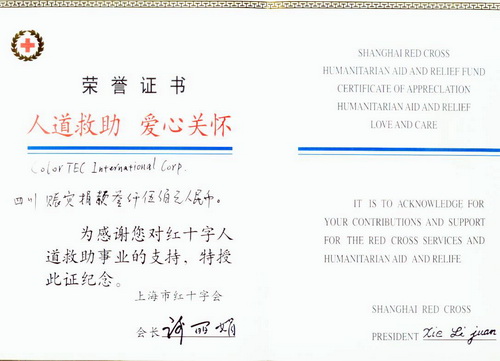 荣誉证书
人道救助 爱心关怀
Color TEC International Corp.
四川 赈灾捐款叁仟伍佰元人民币。
为感谢您对红十字人
道救助事业的支持,特授
此证纪念。
上海市红十字会
会长 谢丽娟
SHANGHAI RED CROSS
HUMANITARIAN AID AND RELIEF FUND
CERTIFICATE OF APPRECLATION
HUMANITARIAN AID AND RELIEF
LOVE AND CARE
IT IS TO ACKNOWLEDGE FOR
YOUR CONTRIBUTIONS AND SUPPORT
FOR THE RED CROSS SERVICES AND
HUMANITARIAN AID AND RELIFE
SHANGHAI RED CROSS
PRESIDENT Xie Li juan